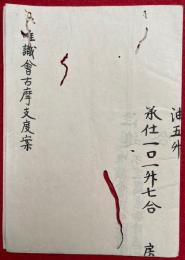 油五升
承仕一口一升七合
房
唯識會古摩支度案